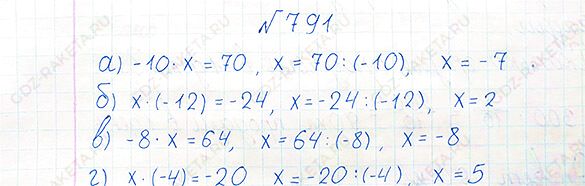 №791
а) -10 · x = 70, x = 70 : (-10), x = -7
б) x · (-12) = -24, x = -24 : (-12), x = 2
в) -8 · x = 64, x = 64 : (-8), x = -8
г) x · (-4) = -20 x = -20 : (-4), x = 5